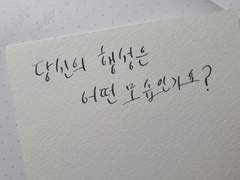 당신의 행성은
어떤 모습인가요?